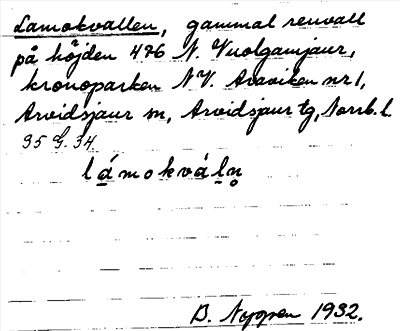 Lamokvallen, gammal renvall
på höjden 476 N. Vuolgamjaur,
kronoparken NV. Araviken nr 1,
Arvidsjaur sn, Arvidsjaur tg, Norrb. l.
35 G. 34
lámokvàln̥
B. Nygren 1932.